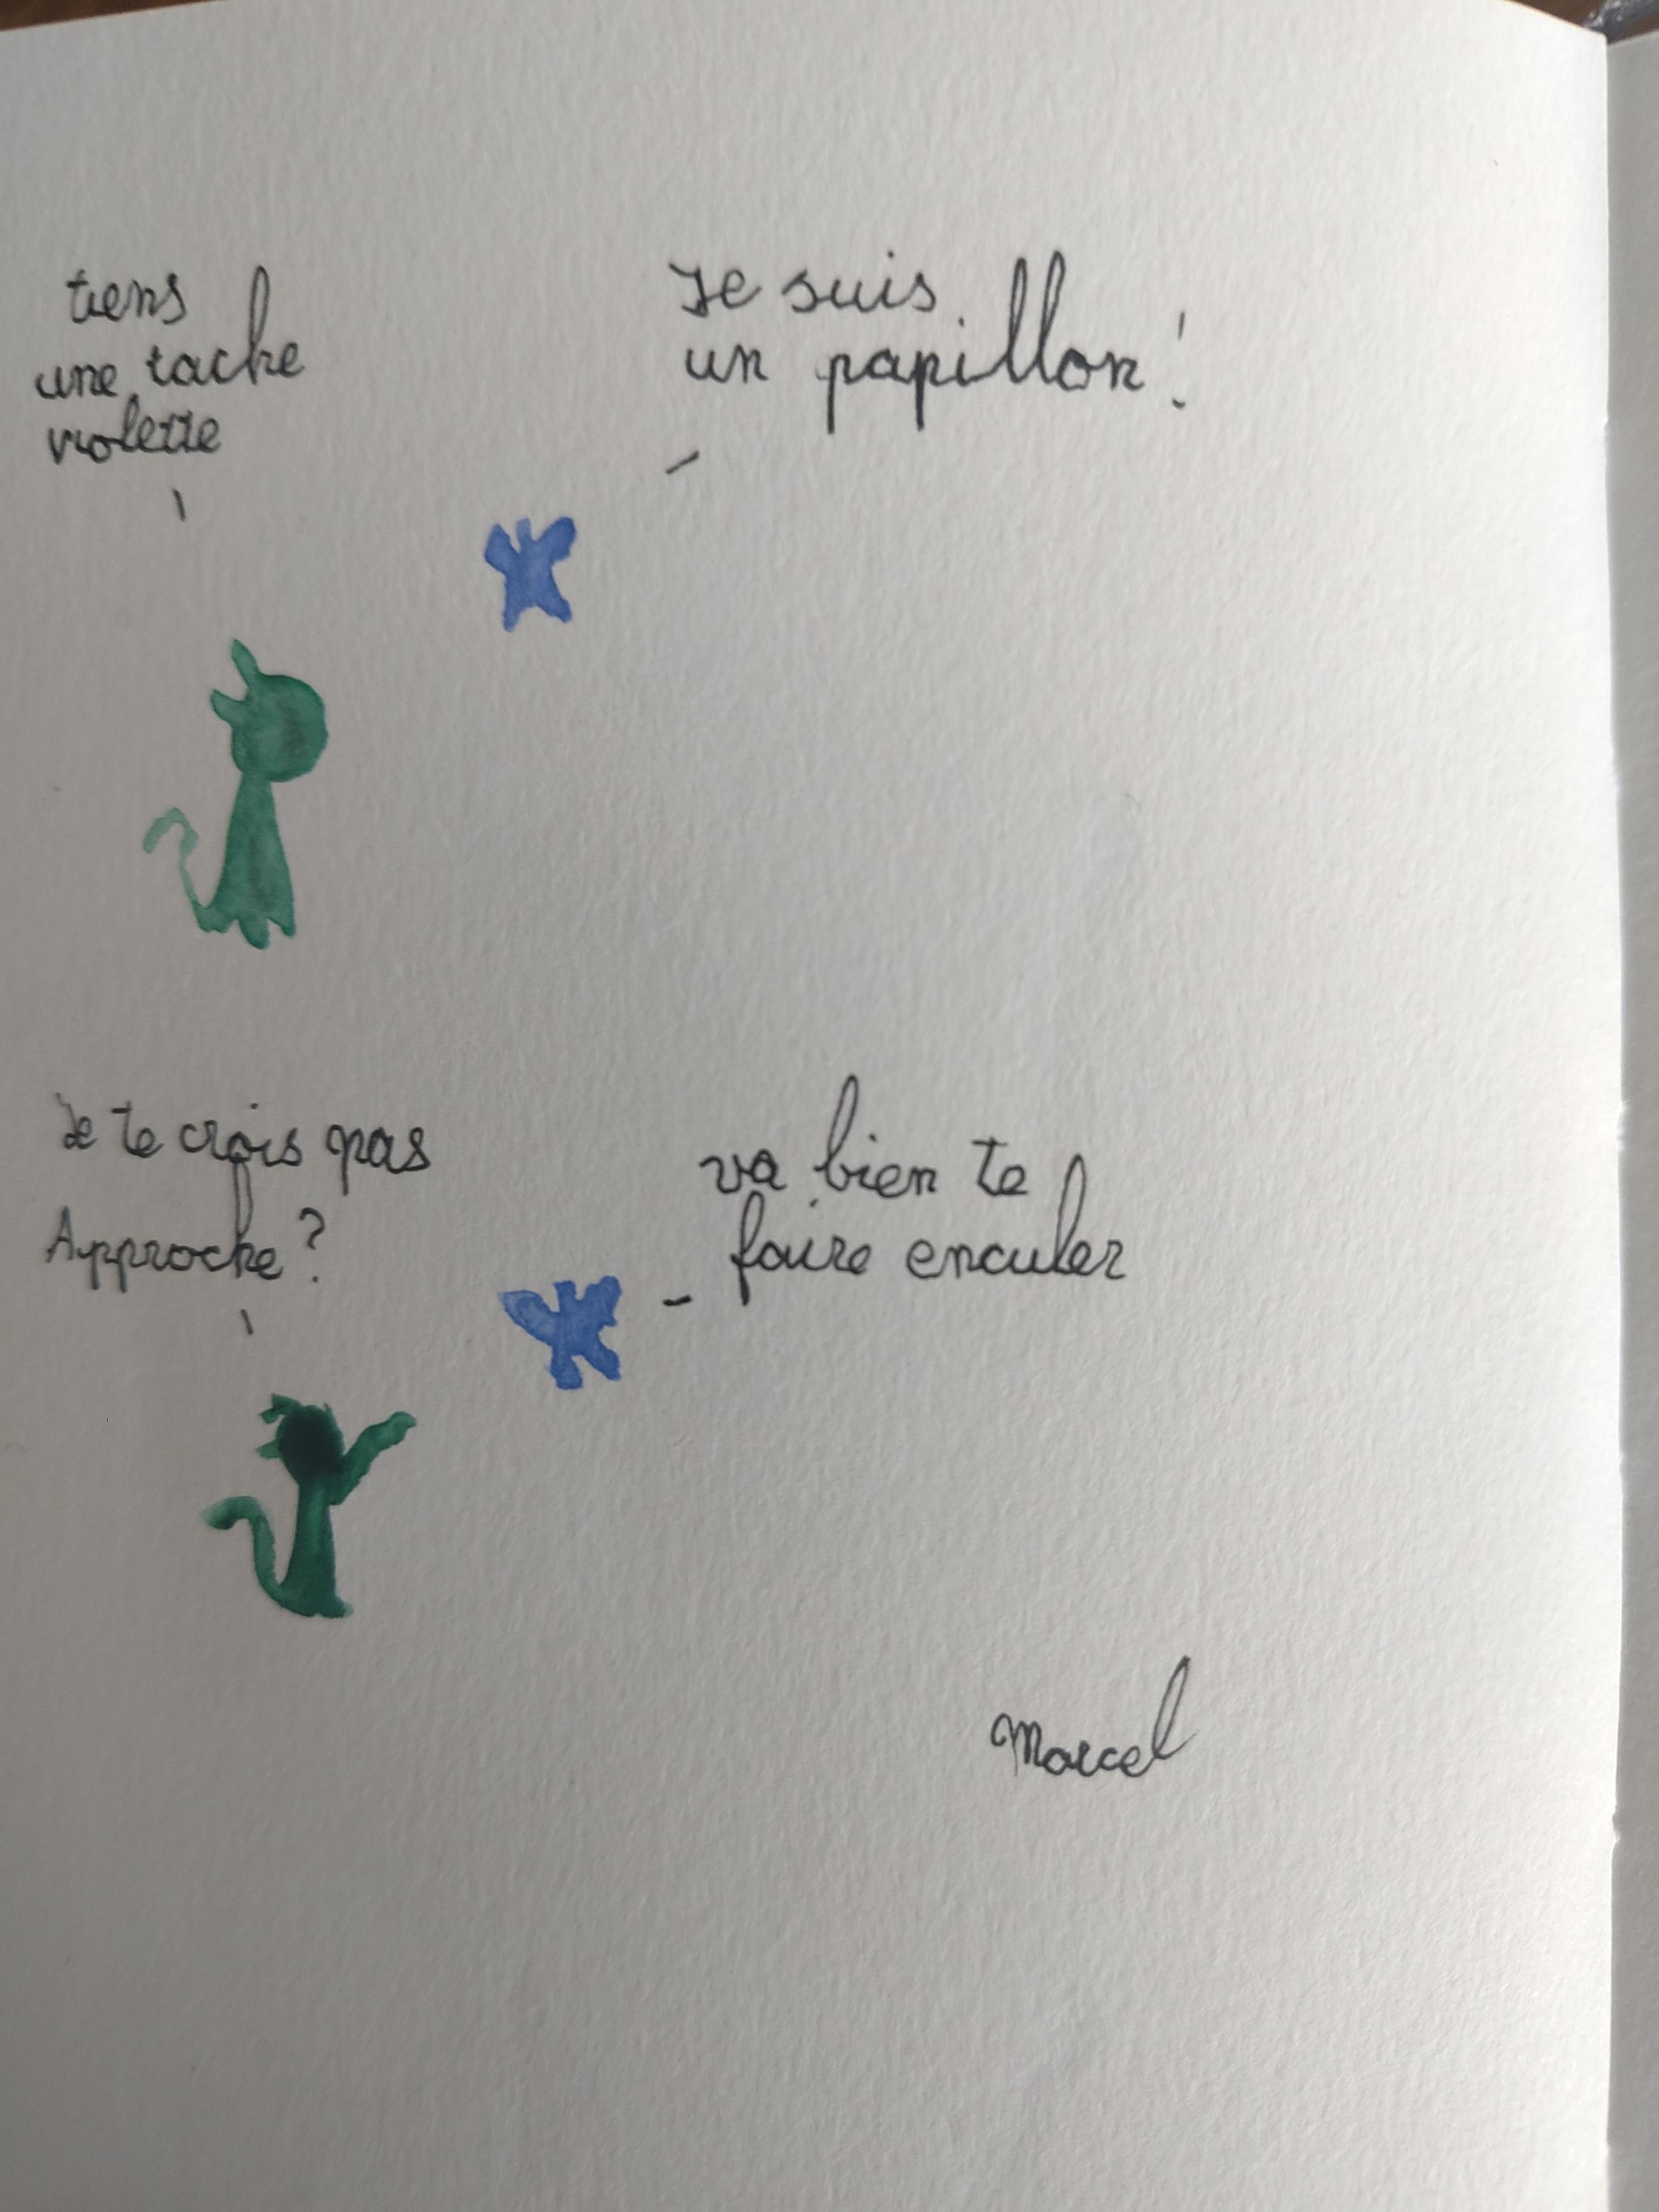 tiens
une tache
violette
Je suis
un papillon!
Je te crois pas
Approche?
va bien te
faire enculer
Marcel